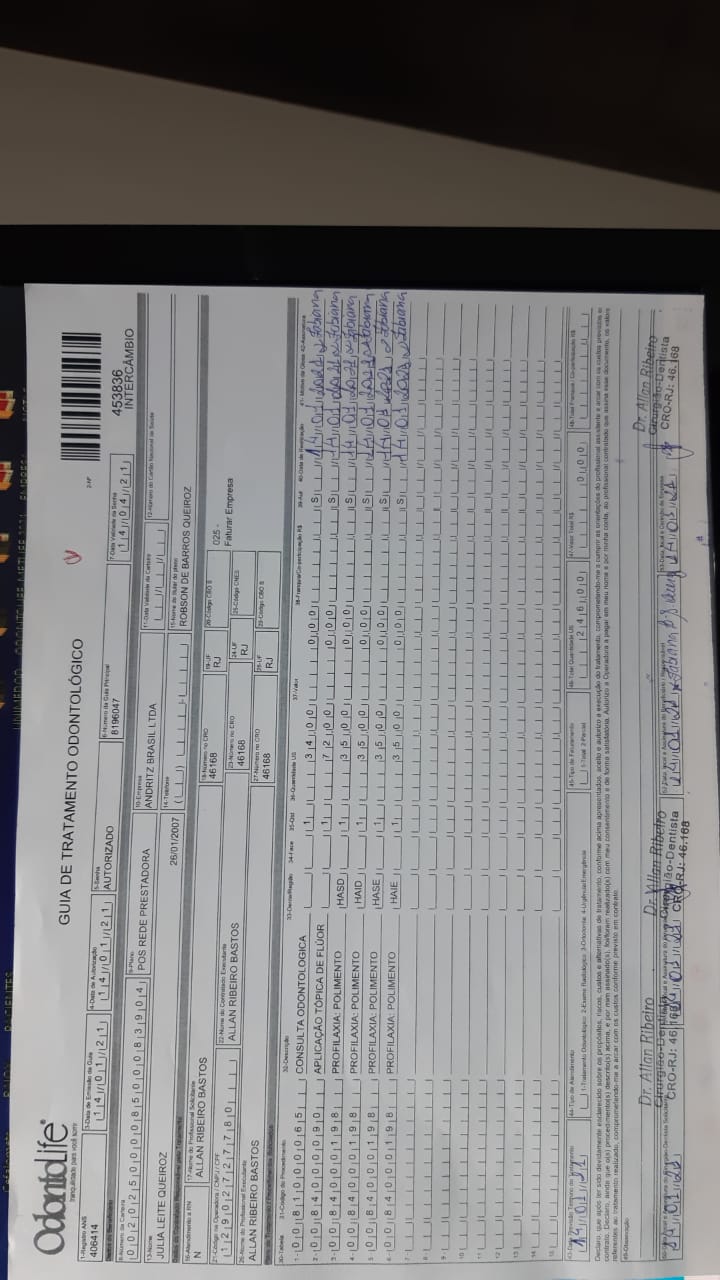 OdontoLife®
GUIA DE TRATAMENTO ODONTOLÓGICO
2-Nº
453836
INTERCÂMBIO
1-Registro ANS
406414
3-Data de Emissão da Guia
14/01/21
4-Data de Autorização
14/01/21
5-Senha
AUTORIZADO
6-Número da Guia Principal
8196047
7-Data Validade da Senha
14/04/21
8-Número da Carteira
00202500008500083904
9-Plano
POS REDE PRESTADORA
10-Empresa
ANDRITZ BRASIL LTDA
11-Data Validade da Carteira
12-Número do Cartão Nacional de Saúde
13-Nome
JULIA LEITE QUEIROZ
26/01/2007
14-Telefone
15-Nome do titular do plano
ROBSON DE BARROS QUEIROZ
16-Atendimento a RN
N
17-Nome do Profissional Solicitante
ALLAN RIBEIRO BASTOS
18-Número no CRO
46168
19-UF
RJ
20-Código CBO S
025 -
Faturar Empresa
21-Código na Operadora / CNPJ / CPF
12902727780
22-Nome do Contratado Executante
ALLAN RIBEIRO BASTOS
23-Número no CRO
46168
24-UF
RJ
25-Código CNES
26-Nome do Profissional Executante
ALLAN RIBEIRO BASTOS
27-Número no CRO
46168
28-UF
RJ
29-Código CBO S
30-Tabela 31-Código do Procedimento 32-Descrição 33-Dente/Região 34-Face 35-Qtd 36-Quantidade US 37-Valor 38-Franquia/Co-participação R$ 39-Aut 40-Data de Realização 41-Motivo da Glosa 42-Assinatura
1- 00 81000065 CONSULTA ODONTOLOGICA 1 34,00 0,00 S 14/01/2021 Fabiana
2- 00 84000090 APLICAÇÃO TÓPICA DE FLÚOR 1 72,00 0,00 S 14/01/2021 Fabiana
3- 00 84000198 PROFILAXIA: POLIMENTO HASD 1 35,00 0,00 S 14/01/2021 Fabiana
4- 00 84000198 PROFILAXIA: POLIMENTO HAID 1 35,00 0,00 S 14/01/2021 Fabiana
5- 00 84000198 PROFILAXIA: POLIMENTO HASE 1 35,00 0,00 S 14/01/2021 Fabiana
6- 00 84000198 PROFILAXIA: POLIMENTO HAIE 1 35,00 0,00 S 14/01/2021 Fabiana
7-
8-
9-
10-
11-
12-
13-
14-
15-
14/01/21
44-Tipo de Atendimento
1-Tratamento Odontológico 2-Exame Radiológico 3-Ortodontia 4-Urgência/Emergência
45-Tipo de Faturamento
1-Total 2-Parcial
46-Total Quantidade US
246,00
47-Valor Total R$
0,00
48-Total Franquia / Co-participação R$
Declaro, que após ter sido devidamente esclarecido sobre os propósitos, riscos, custos e alternativas de tratamento, conforme acima apresentados, aceito e autorizo a execução do tratamento, comprometendo-me a cumprir as orientações do profissional assistente e arcar com os custos previstos em
contrato. Declaro, ainda que o(s) procedimento(s) descrito(s) acima, e por mim assinado(s), foi/foram realizado(s) com meu consentimento e de forma satisfatória. Autorizo a Operadora a pagar em meu nome e por minha conta, ao profissional contratado que assina esse documento, os valores
referentes ao tratamento realizado, comprometendo-me a arcar com os custos conforme previsto em contrato.
49-Observação
Dr. Allan Ribeiro
Cirurgião-Dentista
CRO-RJ: 46.168
14/01/21
Dr. Allan Ribeiro
Cirurgião-Dentista
CRO-RJ: 46.168
14/01/21
14/01/21 Fabiana
Dr. Allan Ribeiro
Cirurgião-Dentista
CRO-RJ: 46.168
14/01/21